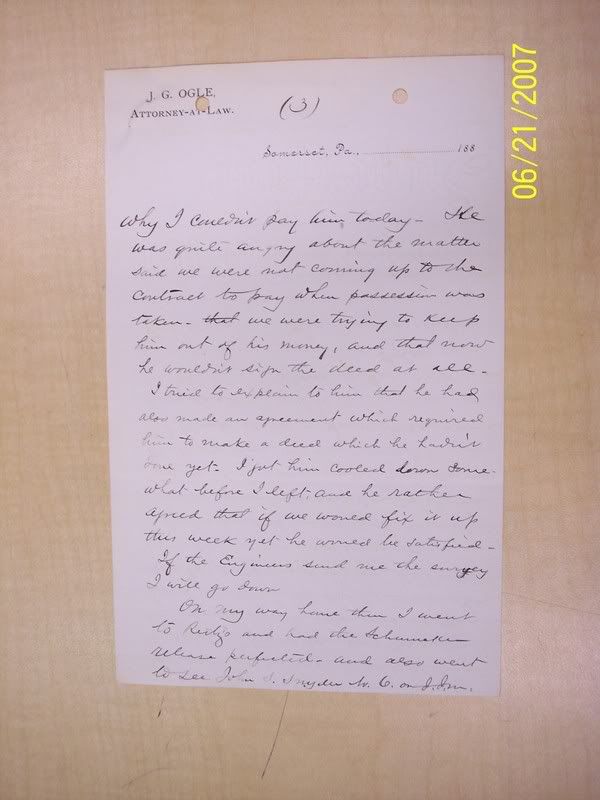 J. G. OGLE,
ATTORNEY-AT-LAW.
(3)
Somerset, Pa., 188
why I couldn't pay him today - He
was quite angry about the matter
said we were not coming up to the
contract to pay when possession was
taken - that we were trying to keep
him out of his money, and that now
he wouldn't sign the deed at all -
I tried to explain to him that he had
also made an agreement which required
him to make a deed which he hadn't
done yet - I got him cooled down some-
what before I left and he rather
agreed that if we would fix it up
this week yet he would be satisfied -
If the Engineers send me the survey
I will go down
On my way home then I went
to and had the Schumaker
release perfected - and also went
to see John S. Snyder No. 6. on
06/21/2007